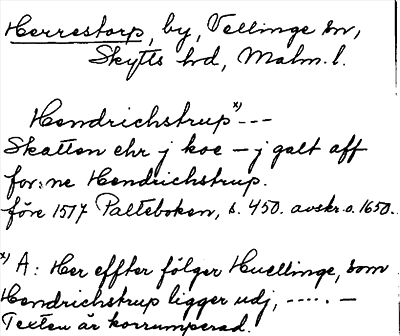 Herrestorp, by, Vellinge sn,
Skytts hd, Malm. l.
Hendrichstrup x) ---
Skatten ehr j koe – j galt aff
for:ne Hendrichstrup.
före 1577 Palteboken, s. 450. avskr. o. 1650.
x) A: Her effter følger Huellinge, som
Hendrichstrup ligger udj, ----. –
Texten är korrumperad.